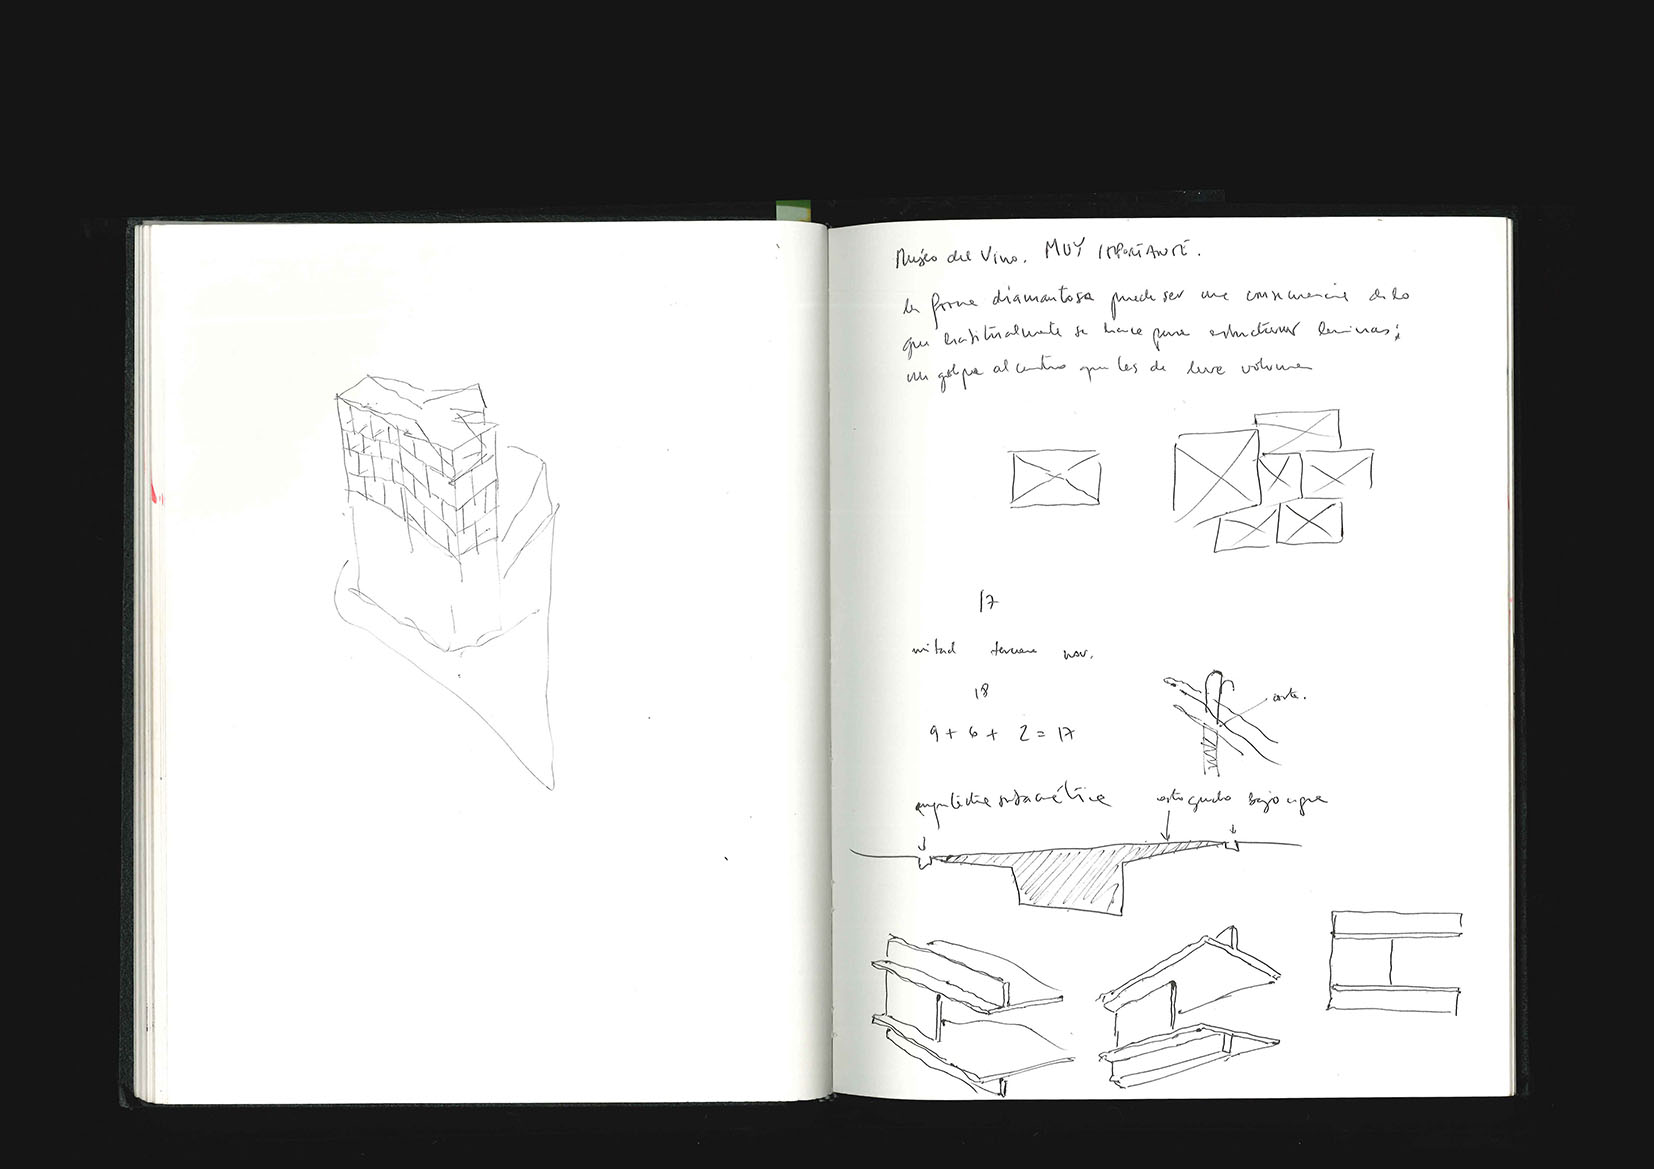 Museo del Vino. MUY IMPORTANTE.
la forma diamantosa puede ser una consecuencia de lo
que habitualmente se hace para estructurar laminas:
un golpe al centro que les de leve volumen
17
mitad tercera nov.
18
9 + 6 + 2 = 17
corte.
bajo agua